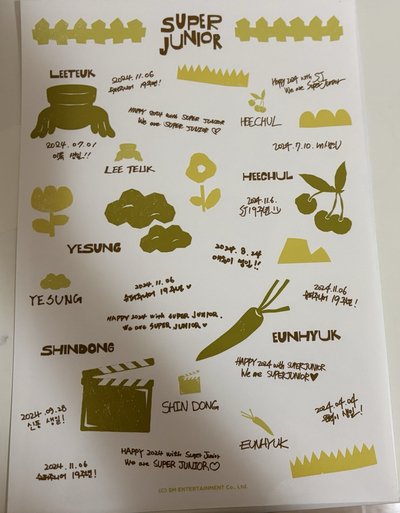 SUPER
JUNIOR
LEETEUK
2024.11.06
슈퍼주니어 19주년♡
HAPPY 2024 with SJ
We are SUPERJUNIOR
HAPPY 2024 with SUPER JUNIOR
We are SUPER JUNIOR♡
HEECHUL
2024.07.01
이특 생일!!
2024.7.10.
LEE TEUK
HEECHUL
2024.11.6.
SJ 19주년
YESUNG
2024.8.24
예성이 생일!!
YESUNG
2024.11.06
슈퍼주니어 19주년♥
2024.11.06
슈퍼주니어 19주년!
HAPPY 2024 with SUPER JUNIOR.
We are SUPER JUNIOR♥
EUNHYUK
SHINDONG
HAPPY 2024 with SUPERJUNIOR
We are SUPERJUNIOR♡
2024.09.28
신동 생일!
SHIN DONG
2024.04.04
은혁이 생일~!
EUNHYUK
2024.11.06
슈퍼주니어 19주년!
HAPPY 2024 with Super Junior
We are SUPER JUNIOR♡
(C) SM ENTERTAINMENT Co., Ltd.